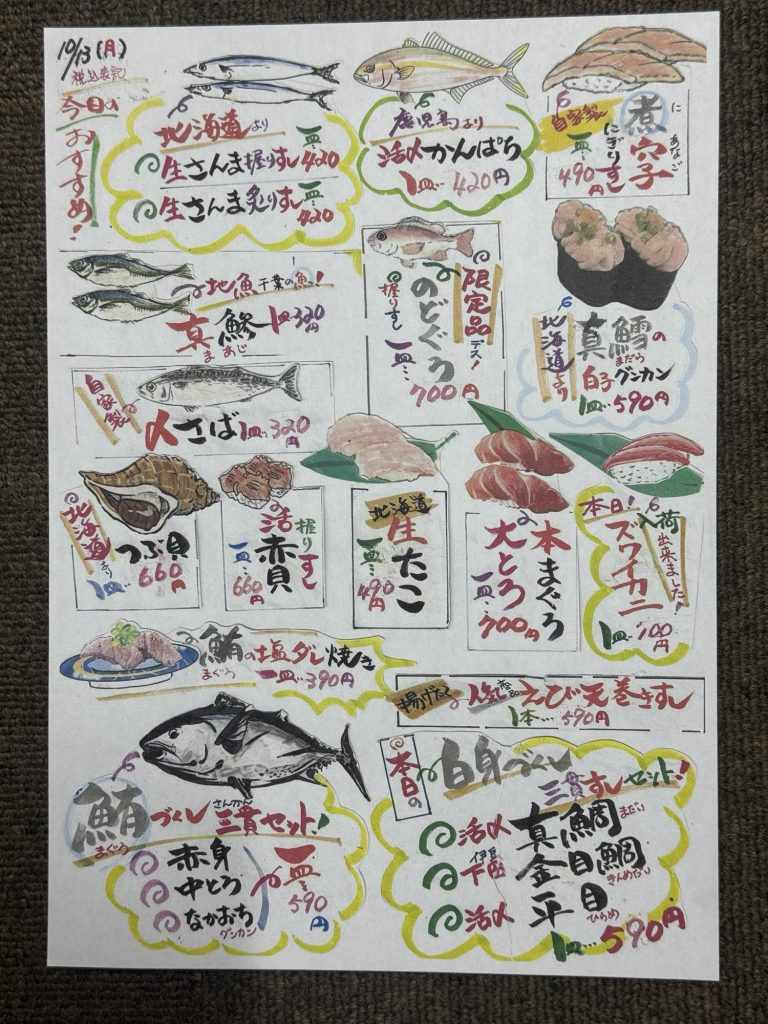 10/13(月)
税込表記
今日の
おすすめ!
北海道より
生さんま握りすし 一皿…420
生さんま炙りすし 一皿…420
鹿児島より
活〆かんぱち
1皿…420円
自家製
煮穴子
に あなご
にぎりすし
一皿…490円
地魚 千葉の魚!
真鯵 1皿320円
まあじ
限定品デス!
のどぐろ
握りすし
一皿…700円
北海道より
真鱈の
まだら
白子グンカン
1皿…590円
自家製
〆さば 1皿…320円
北海道より
つぶ貝
1皿…660円
握りすし
活赤貝
一皿…660円
北海道
生たこ
一皿…490円
本まぐろ
大とろ
一皿…700円
本日!
入荷出来ました!
ズワイカニ
1皿…700円
鮪の塩ダレ焼き
まぐろ
一皿…390円
揚げたて 人気商品 えび天巻きすし
1本…590円
鮪づくし 三貫セット!
まぐろ さんかん
赤身
中とろ
なかおち
グンカン
一皿…590円
本日の
白身づくし
三貫すしセット!
活〆 真鯛 まだい
伊豆下田 金目鯛 きんめだい
活〆 平目 ひらめ
1皿…590円